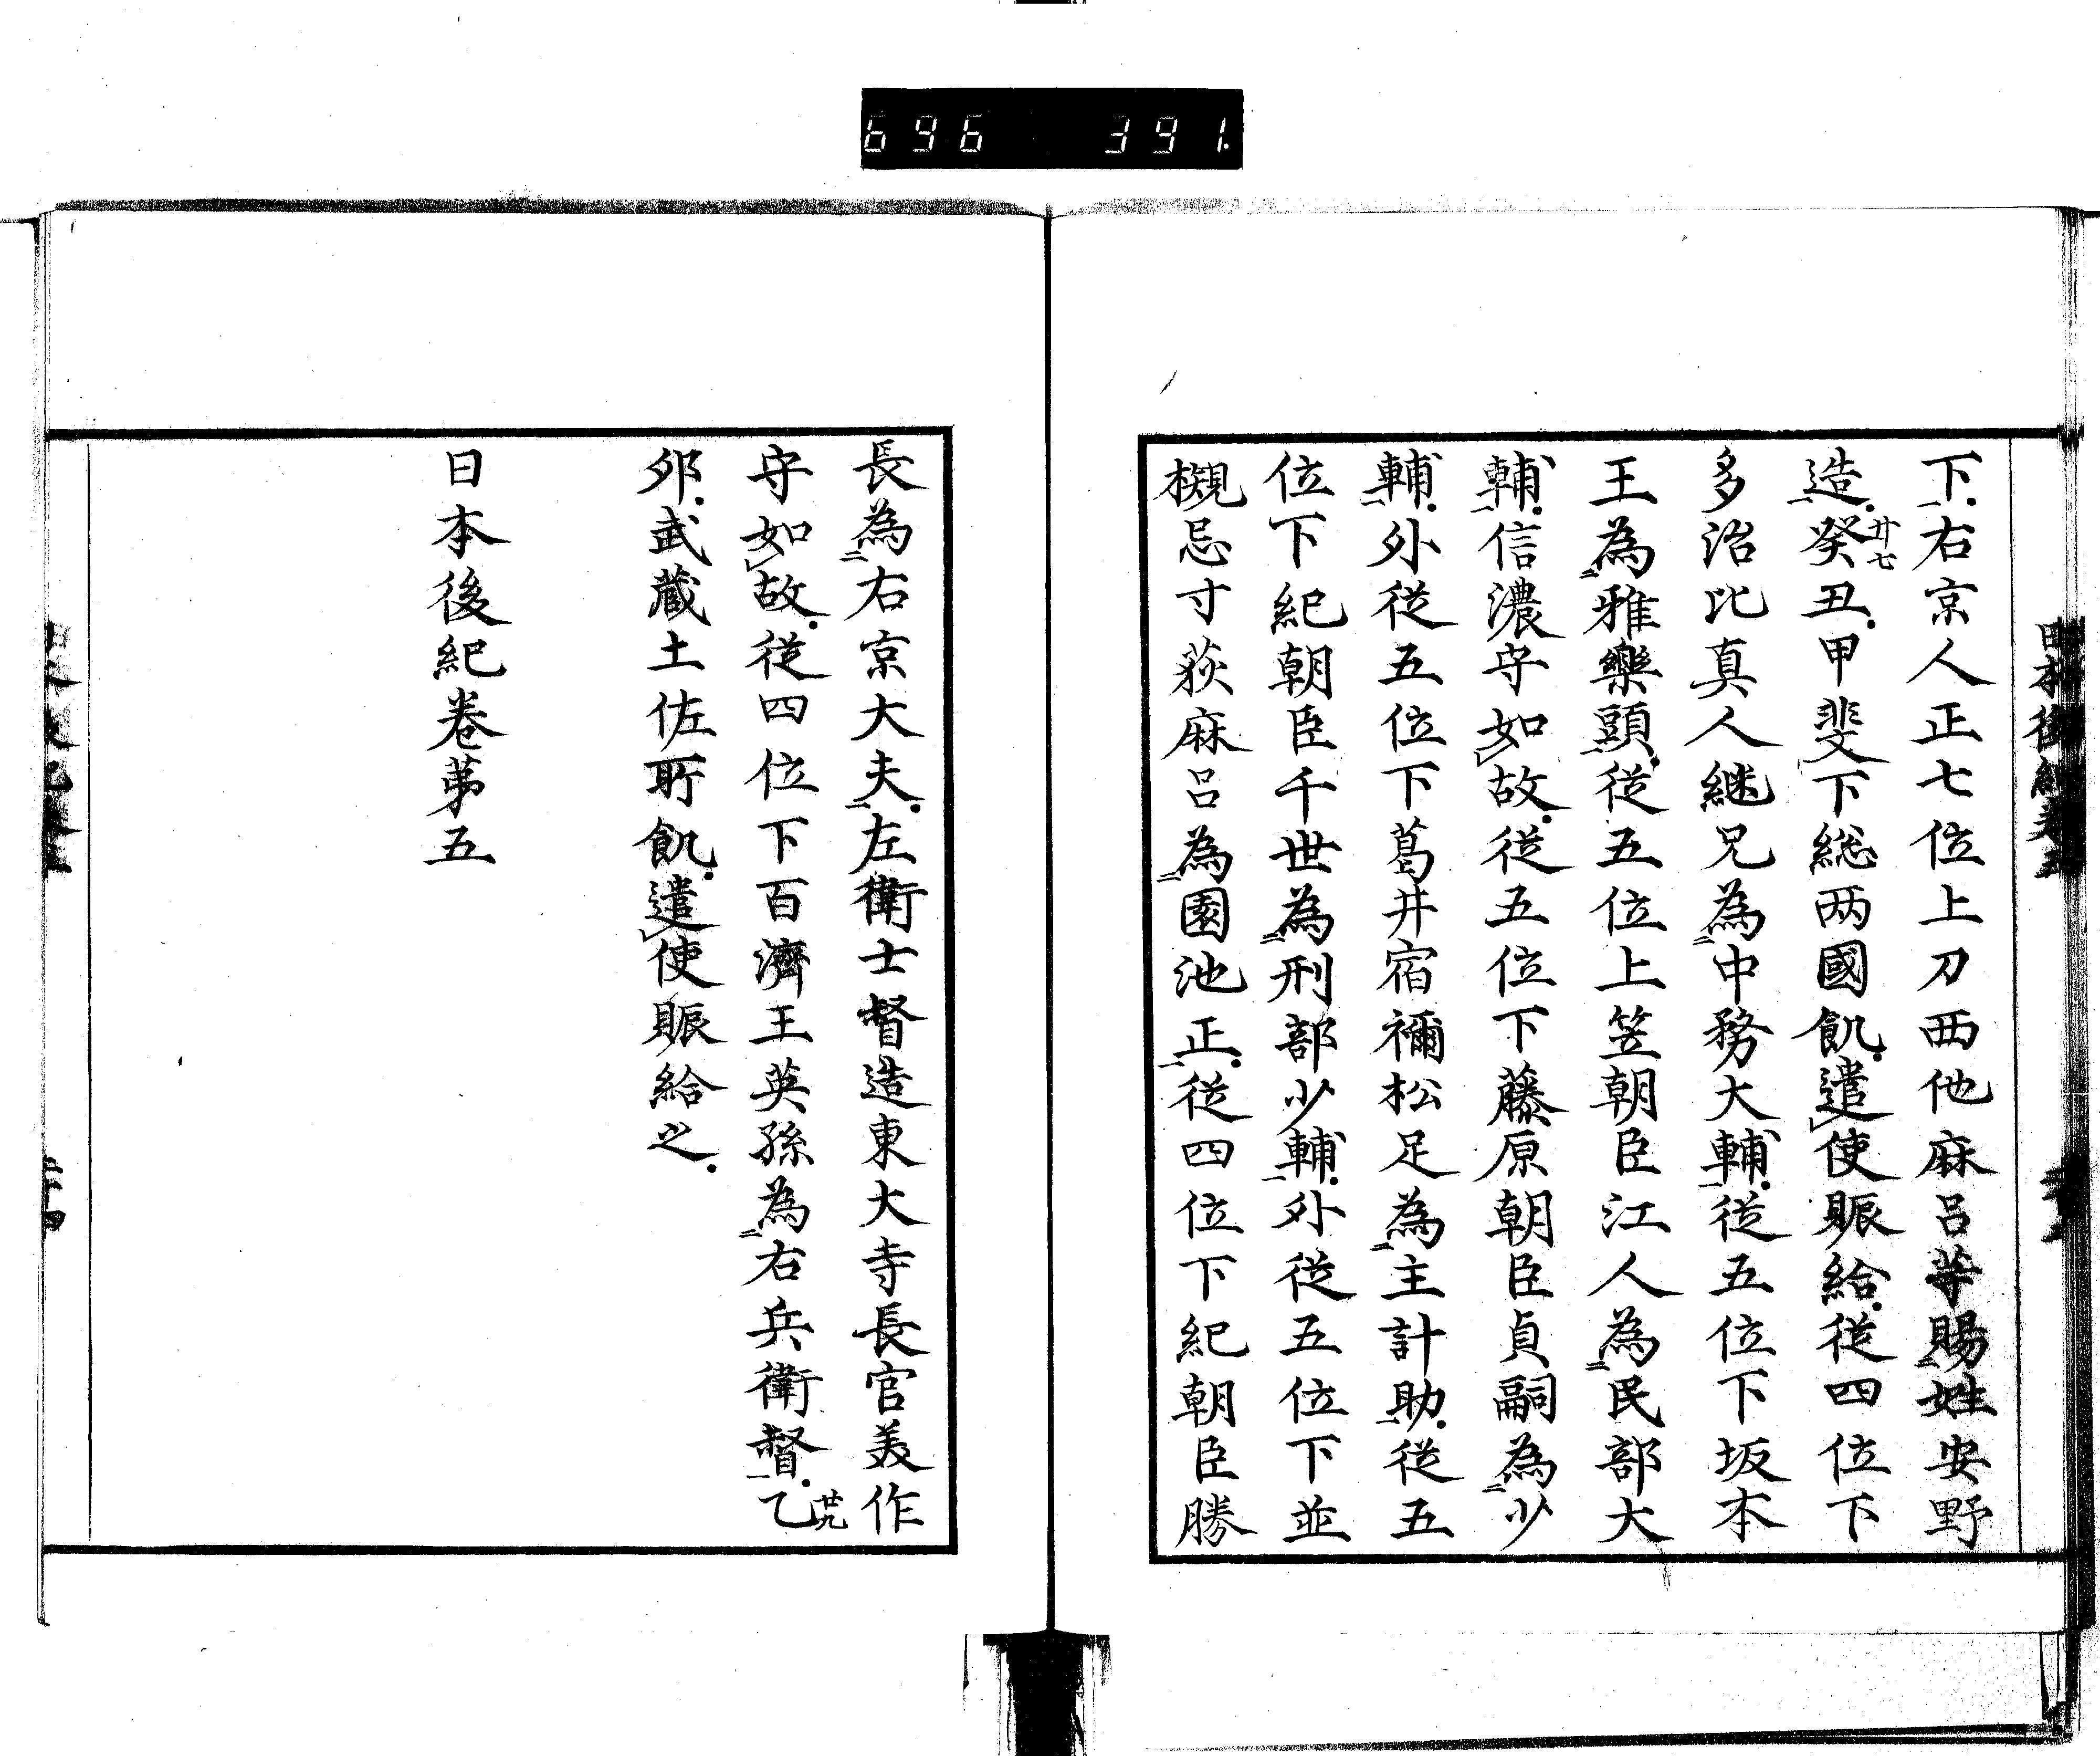 696 391.
下右京人正七位上刀西他麻呂等賜姓安野
造癸丑甲斐下総两國飢遣使賑給従四位下
廿七
多治比真人継兄為中務大輔従五位下坂本
王為雅樂頭従五位上笠朝臣江人為民部大
輔信濃守如故従五位下藤原朝臣貞嗣為少
輔外従五位下葛井宿禰松足為主計助従五
位下紀朝臣千世為刑部少輔外従五位下並
槻忌寸荻麻呂為園池正従四位下紀朝臣勝
長為右京大夫左衛士督造東大寺長官美作
守如故従四位下百濟王英孫為右兵衛督乙
廿九
夘武蔵土佐所飢遣使賑給之
日本後紀卷苐五